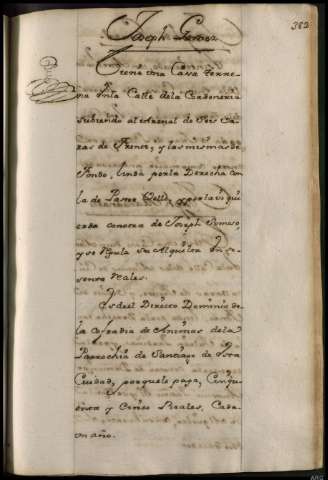 382
Joseph
Tiene Una Casa terre-
na en la Calle de la
subiendo al Arenal de Seis Ca-
ras de frente, y las mismas de
fondo, linda por la Derecha con
la de y por la Yzqui
erda con otra de Joseph
y se regula su Alquiler en se-
senta reales.
Y
Es del Directo Dominio de
la Cofradia de Animas de la
Parrochia de Santiago de esta
Ciudad, porque le paga, Cinqu
enta y Cinco Reales, Cada
un año.